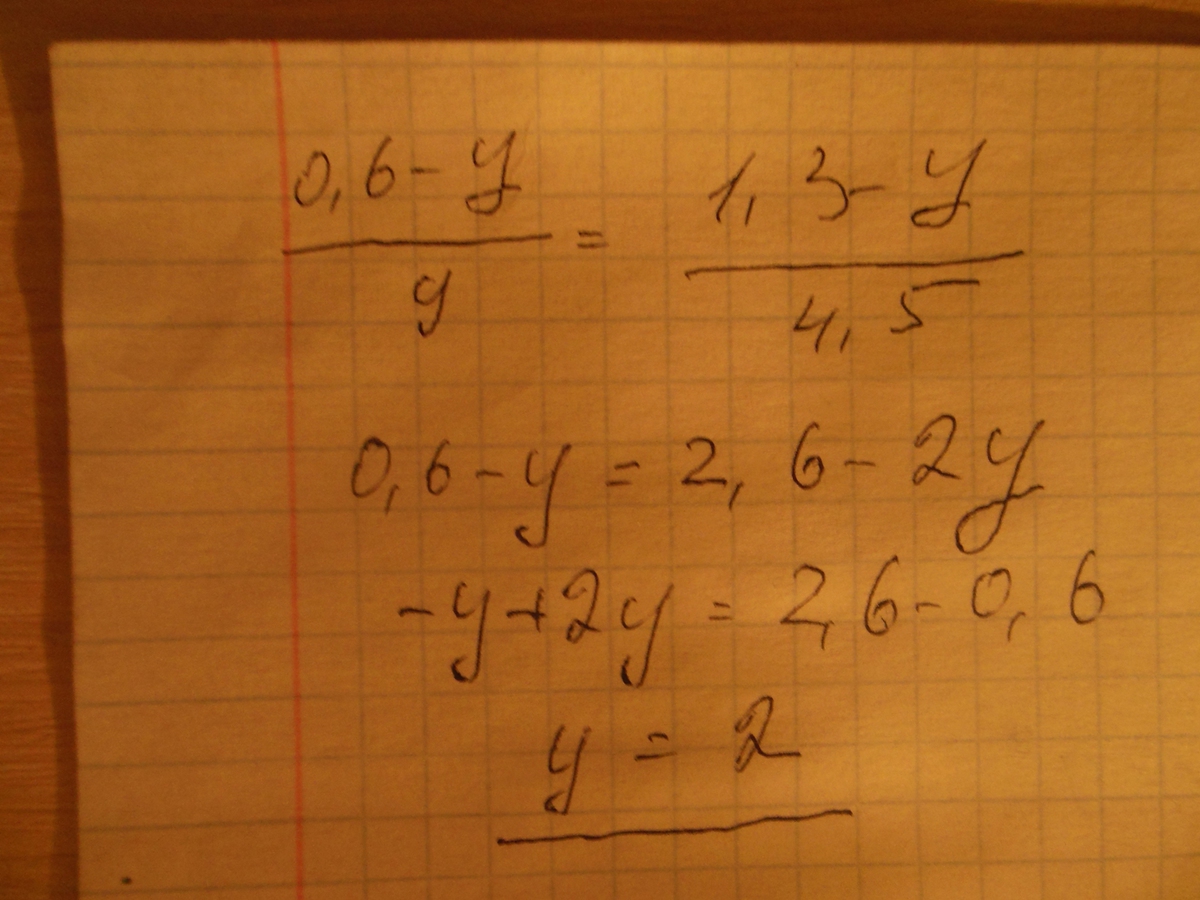 0,6 - y = 1,3 - y
9 4,5
0,6 - y = 2,6 - 2y
-y + 2y = 2,6 - 0,6
y = 2